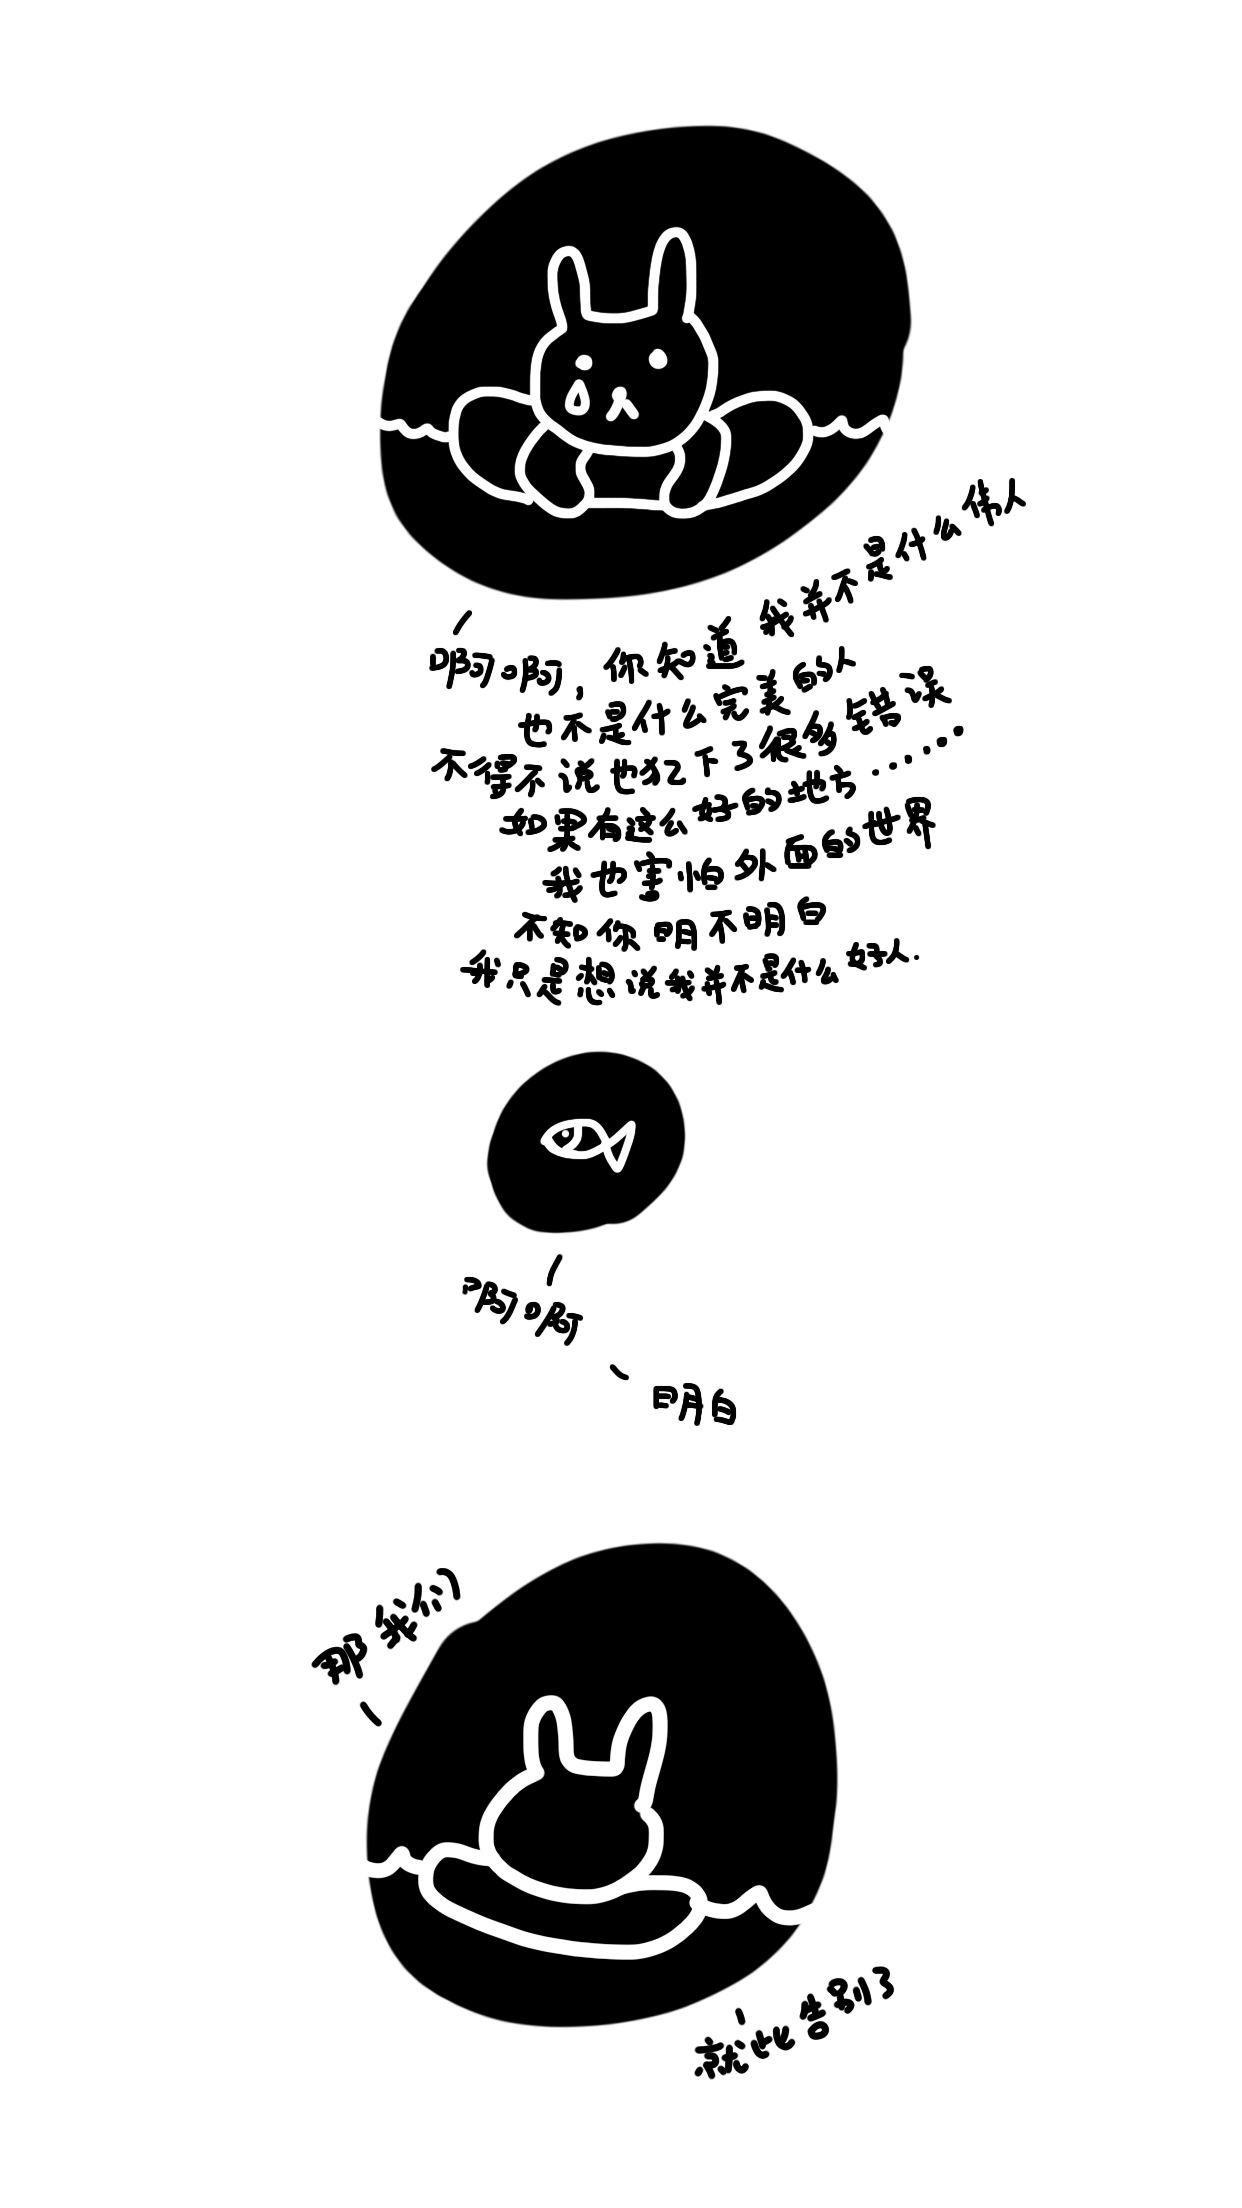 啊啊，你知道 我并不是什么伟人
也不是什么完美的人
不得不说也犯下了很多错误
如果有这么好的地方……
我也害怕外面的世界
不知你明不明白
我只是想说我并不是什么好人.
啊啊
明白
那我们
就此告别了